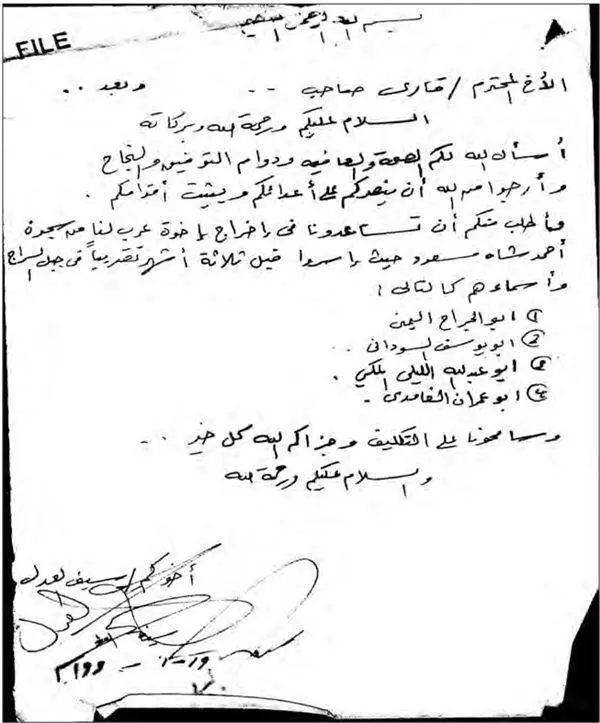 بسم الله الرحمن الرحيم
FILE
الأخ المحترم / قارى صاحب -- وبعد ..
السلام عليكم ورحمة الله وبركاته
أسأل الله لكم الصحة والعافيه ودوام التوفيق والنجاح
وأرجوا من الله أن ينصركم على أعدائكم ويثبت أقدامكم .
وأطلب منكم أن تساعدونا فى إخراج إخوة عرب لنا من سجون
أحمد شاه مسعود حيث أسروا قبل ثلاثة أشهر تقريباً فى جبل السراج
وأسماءهم كالتالى :
① ابو الجراح اليمنى
② ابو يوسف السودانى .
③ ابو عبد الله الليبى المكي .
④ ابو عمران الغامدى -
وسامحونا على التكليف وجزاكم الله كل خير ..
والسلام عليكم ورحمة الله
أخوكم / سيف العدل